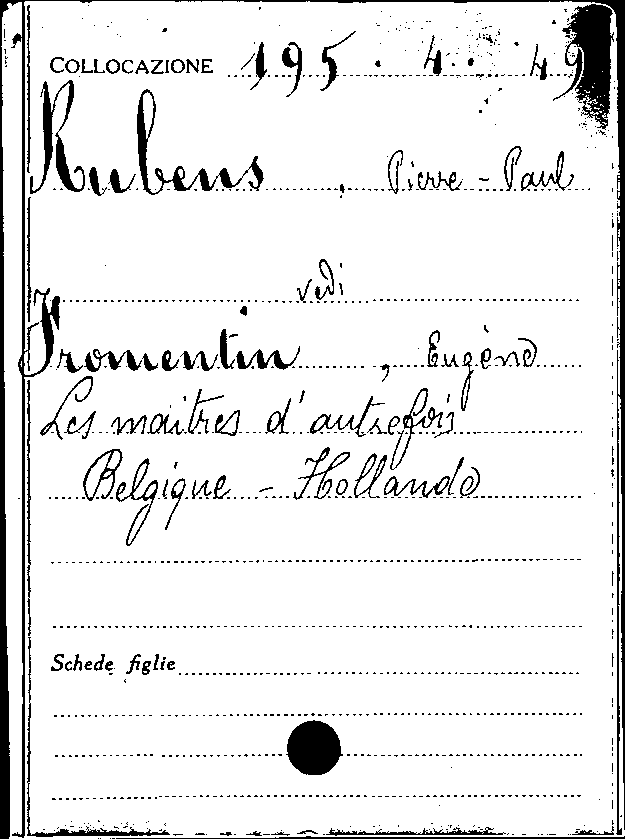 COLLOCAZIONE 195 . 4 . . 49
Rubens , Pierre - Paul
vedi
Fromentin , Eugène
Les maitres d'autrefois
Belgique - Hollande
Schede figlie